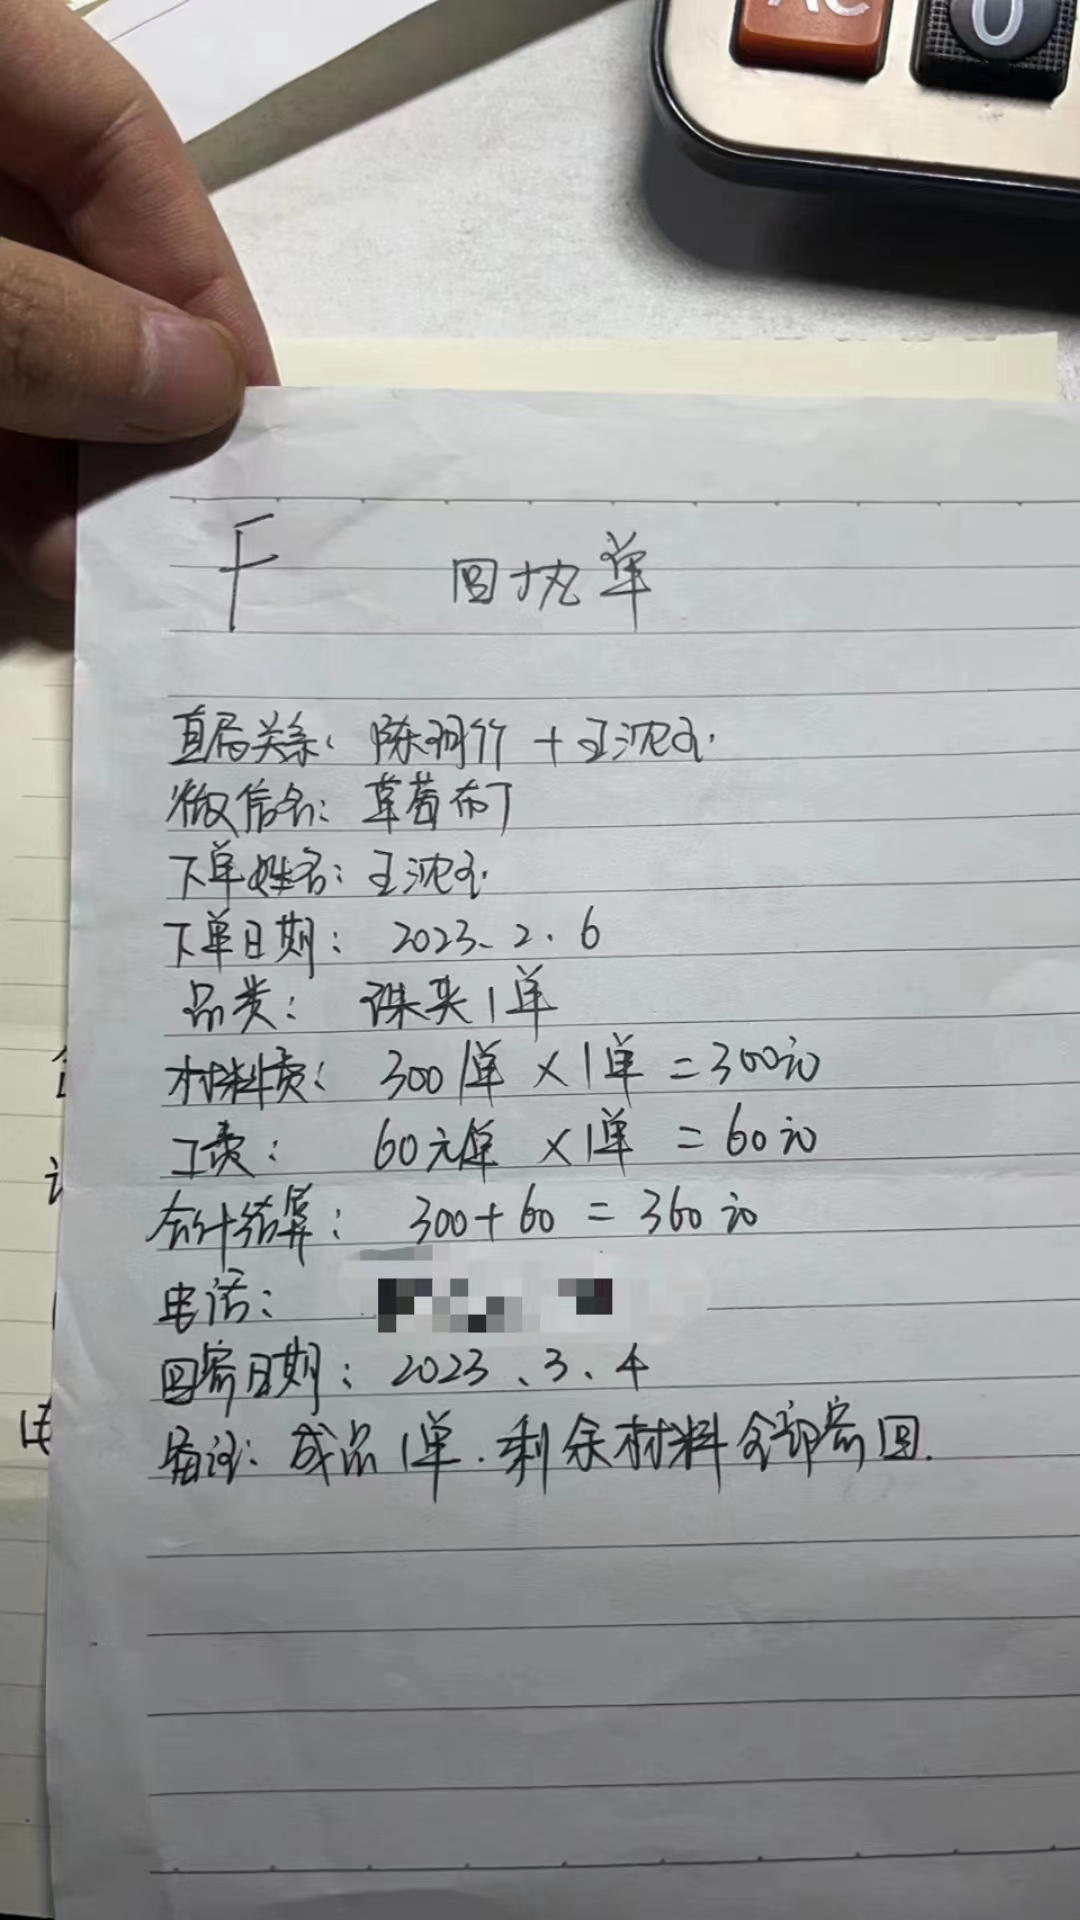 AC 0
F 回执单
直属关系: 陈羽竹 + 王沈玉.
微信名: 草莓布丁
下单姓名: 王沈玉.
下单日期: 2023.2.6
品类: 珠夹1单
材料费: 300/单 × 1单 = 300元
工费: 60元/单 × 1单 = 60元
合计结算: 300+60 = 360元
电话:
回寄日期: 2023.3.4
备注: 成品1单.剩余材料全部寄回.